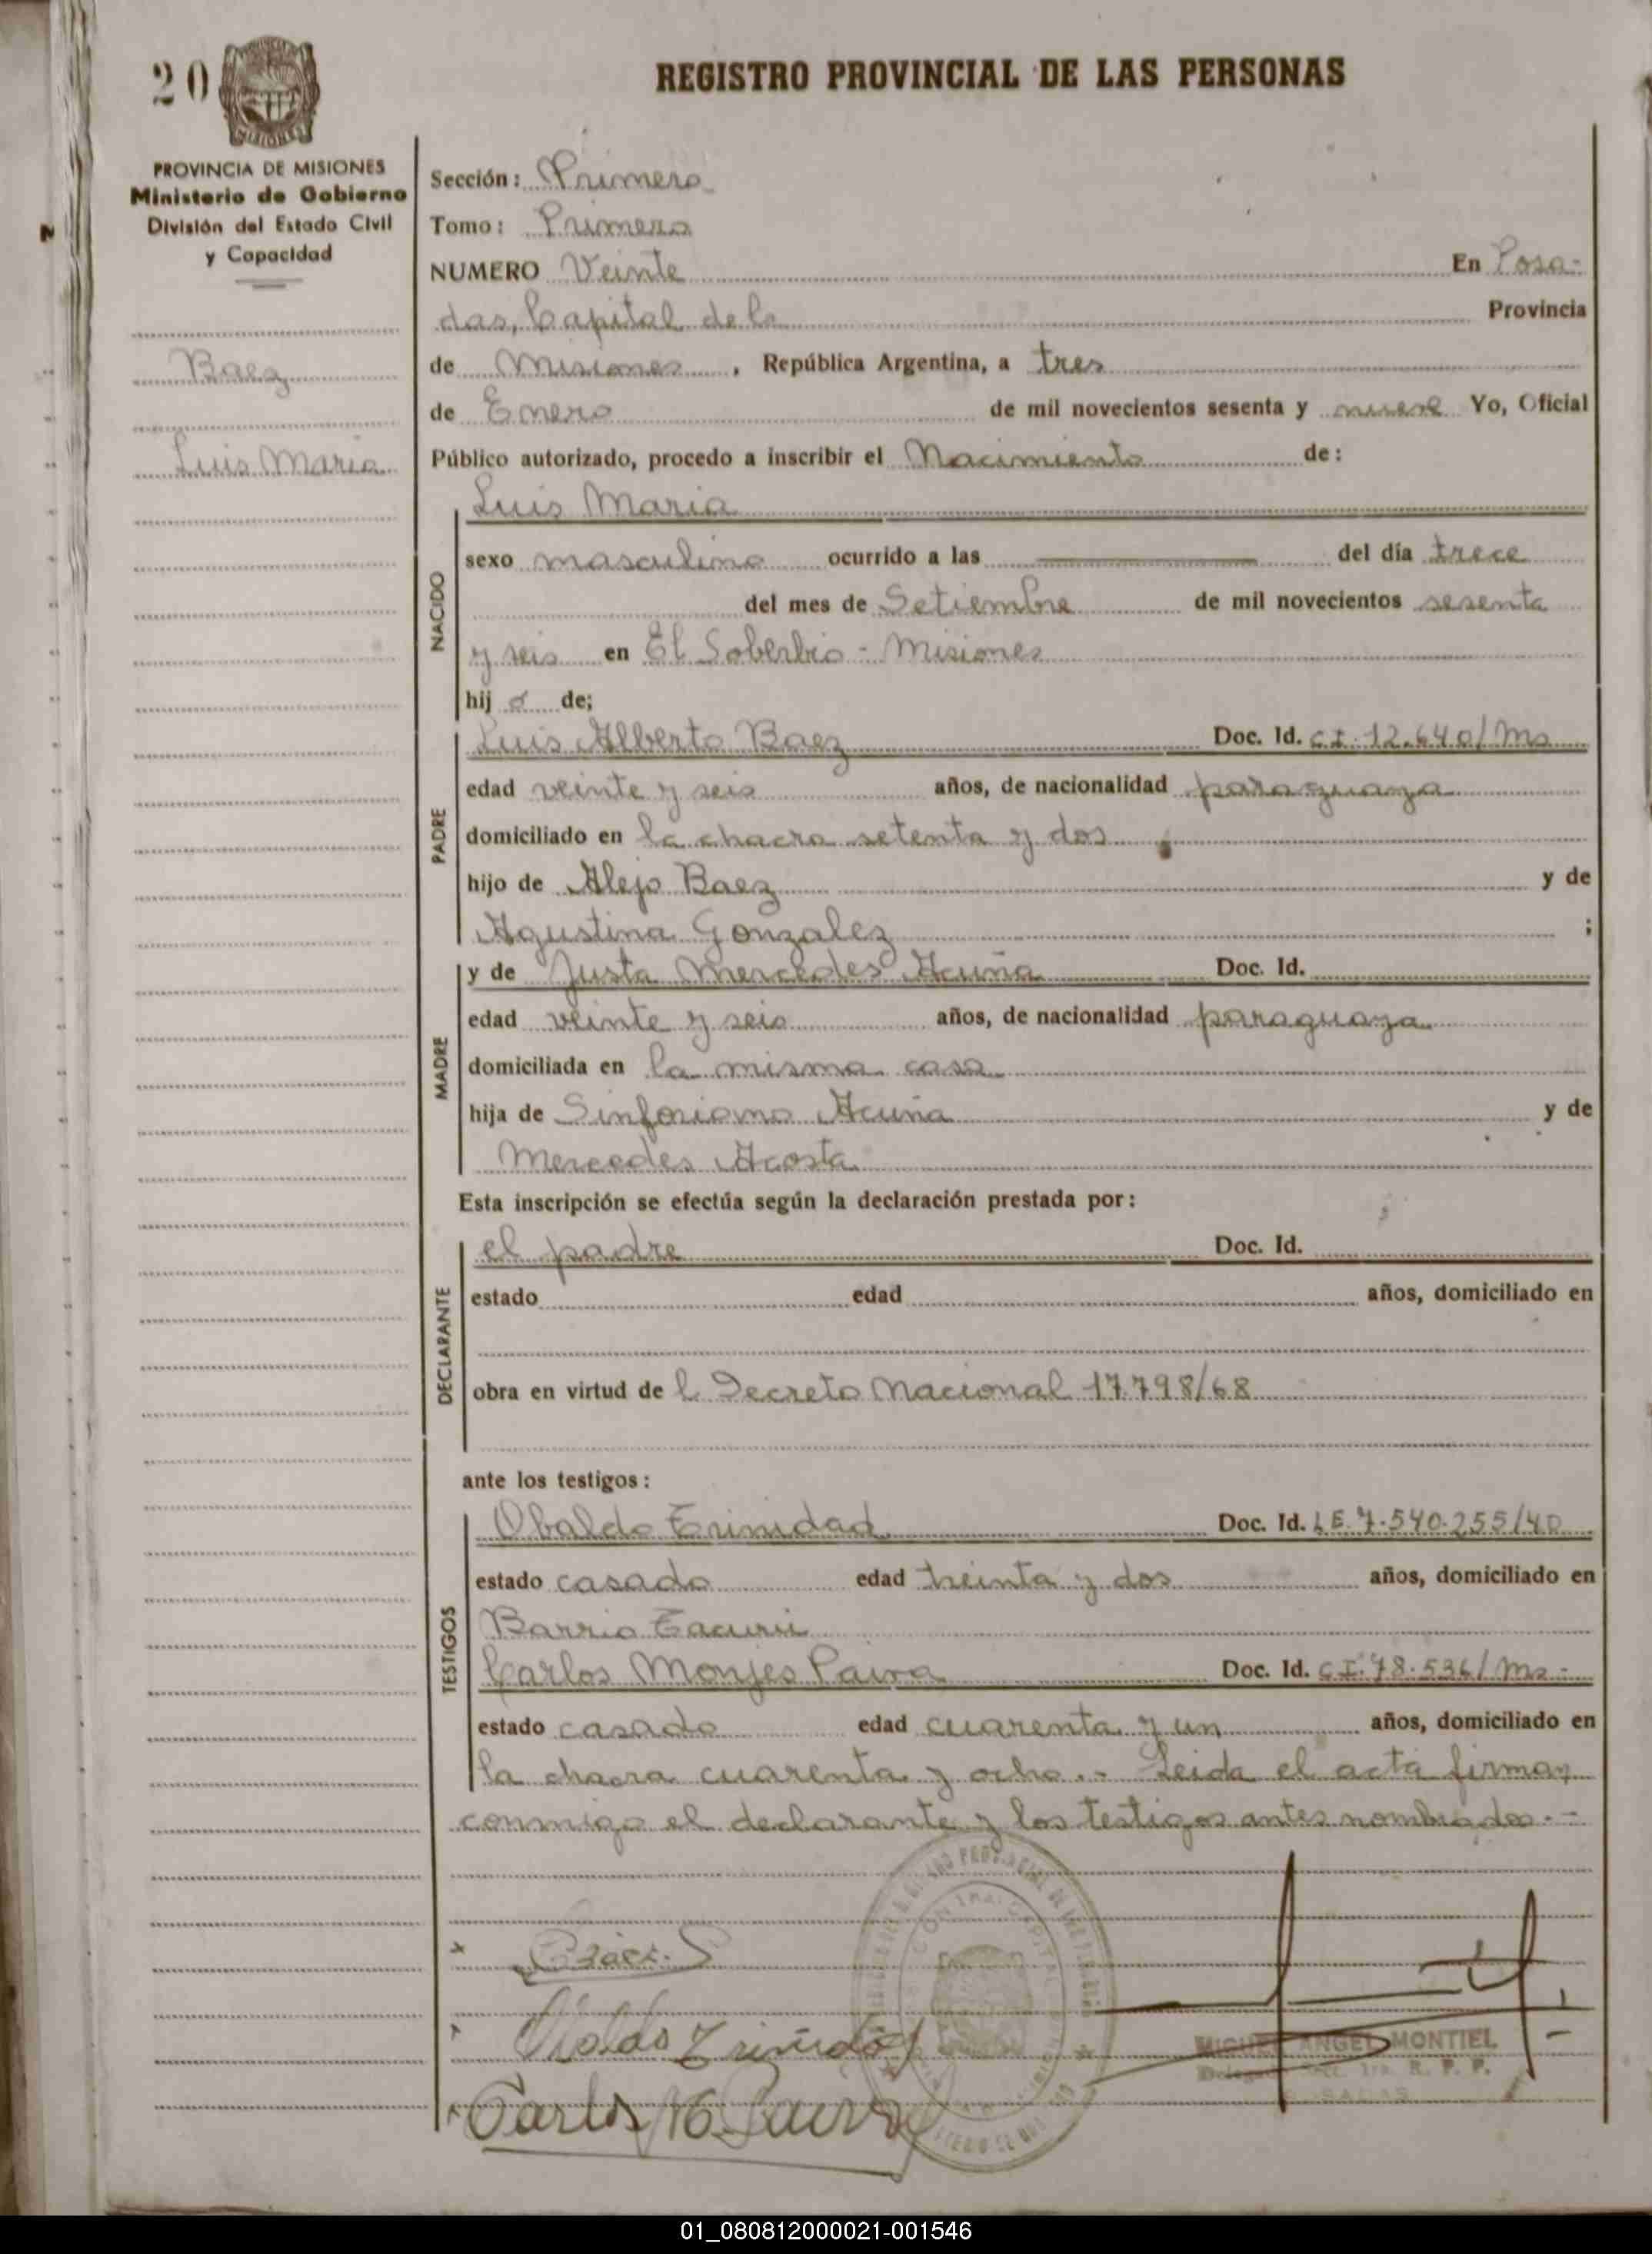 20
REGISTRO PROVINCIAL DE LAS PERSONAS
PROVINCIA DE MISIONES
Ministerio de Gobierno
División del Estado Civil
y Capacidad
Baez
Luis Maria
Sección: Primera
Tomo: Primero
NUMERO Veinte En Posa-
das, Capital de la Provincia
de Misiones, República Argentina, a tres
de Enero de mil novecientos sesenta y nueve Yo, Oficial
Público autorizado, procedo a inscribir el Nacimiento de:
NACIDO
Luis Maria
sexo masculino ocurrido a las del día trece
del mes de Setiembre de mil novecientos sesenta
y seis en El Soberbio - Misiones
hij o de;
PADRE
Luis Alberto Baez Doc. Id. C.I. 12.640/Ms
edad veinte y seis años, de nacionalidad paraguaya
domiciliado en la chacra setenta y dos
hijo de Alejo Baez y de
Agustina Gonzalez ;
MADRE
y de Justa Mercedes Acuña Doc. Id.
edad veinte y seis años, de nacionalidad paraguaya
domiciliada en la misma casa
hija de Sinforiano Acuña y de
Mercedes Acosta
Esta inscripción se efectúa según la declaración prestada por:
DECLARANTE
el padre Doc. Id.
estado edad años, domiciliado en
obra en virtud de l Decreto Nacional 17.798/68
ante los testigos:
TESTIGOS
Obaldo Trinidad Doc. Id. L.E. 7.540.255/40
estado casado edad treinta y dos años, domiciliado en
Barrio Tacurú
Carlos Monjes Paiva Doc. Id. C.I. 78.536/Ms-
estado casado edad cuarenta y un años, domiciliado en
la chacra cuarenta y ocho.- Leida el acta firman
conmigo el declarante y los testigos antes nombrados.-
Baez
Obaldo Trinidad
MIGUEL ANGEL MONTIEL
R. P. P.
Carlos M Paiva
01_080812000021-001546